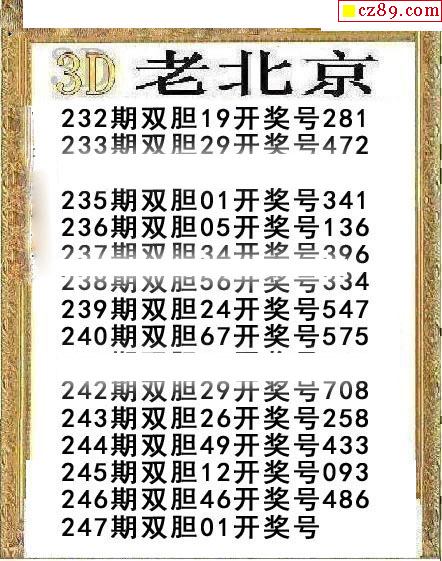 cz89.com
3D 老北京
232期双胆19开奖号281
233期双胆29开奖号472
235期双胆01开奖号341
236期双胆05开奖号136
237期双胆34开奖号396
238期双胆56开奖号334
239期双胆24开奖号547
240期双胆67开奖号575
242期双胆29开奖号708
243期双胆26开奖号258
244期双胆49开奖号433
245期双胆12开奖号093
246期双胆46开奖号486
247期双胆01开奖号